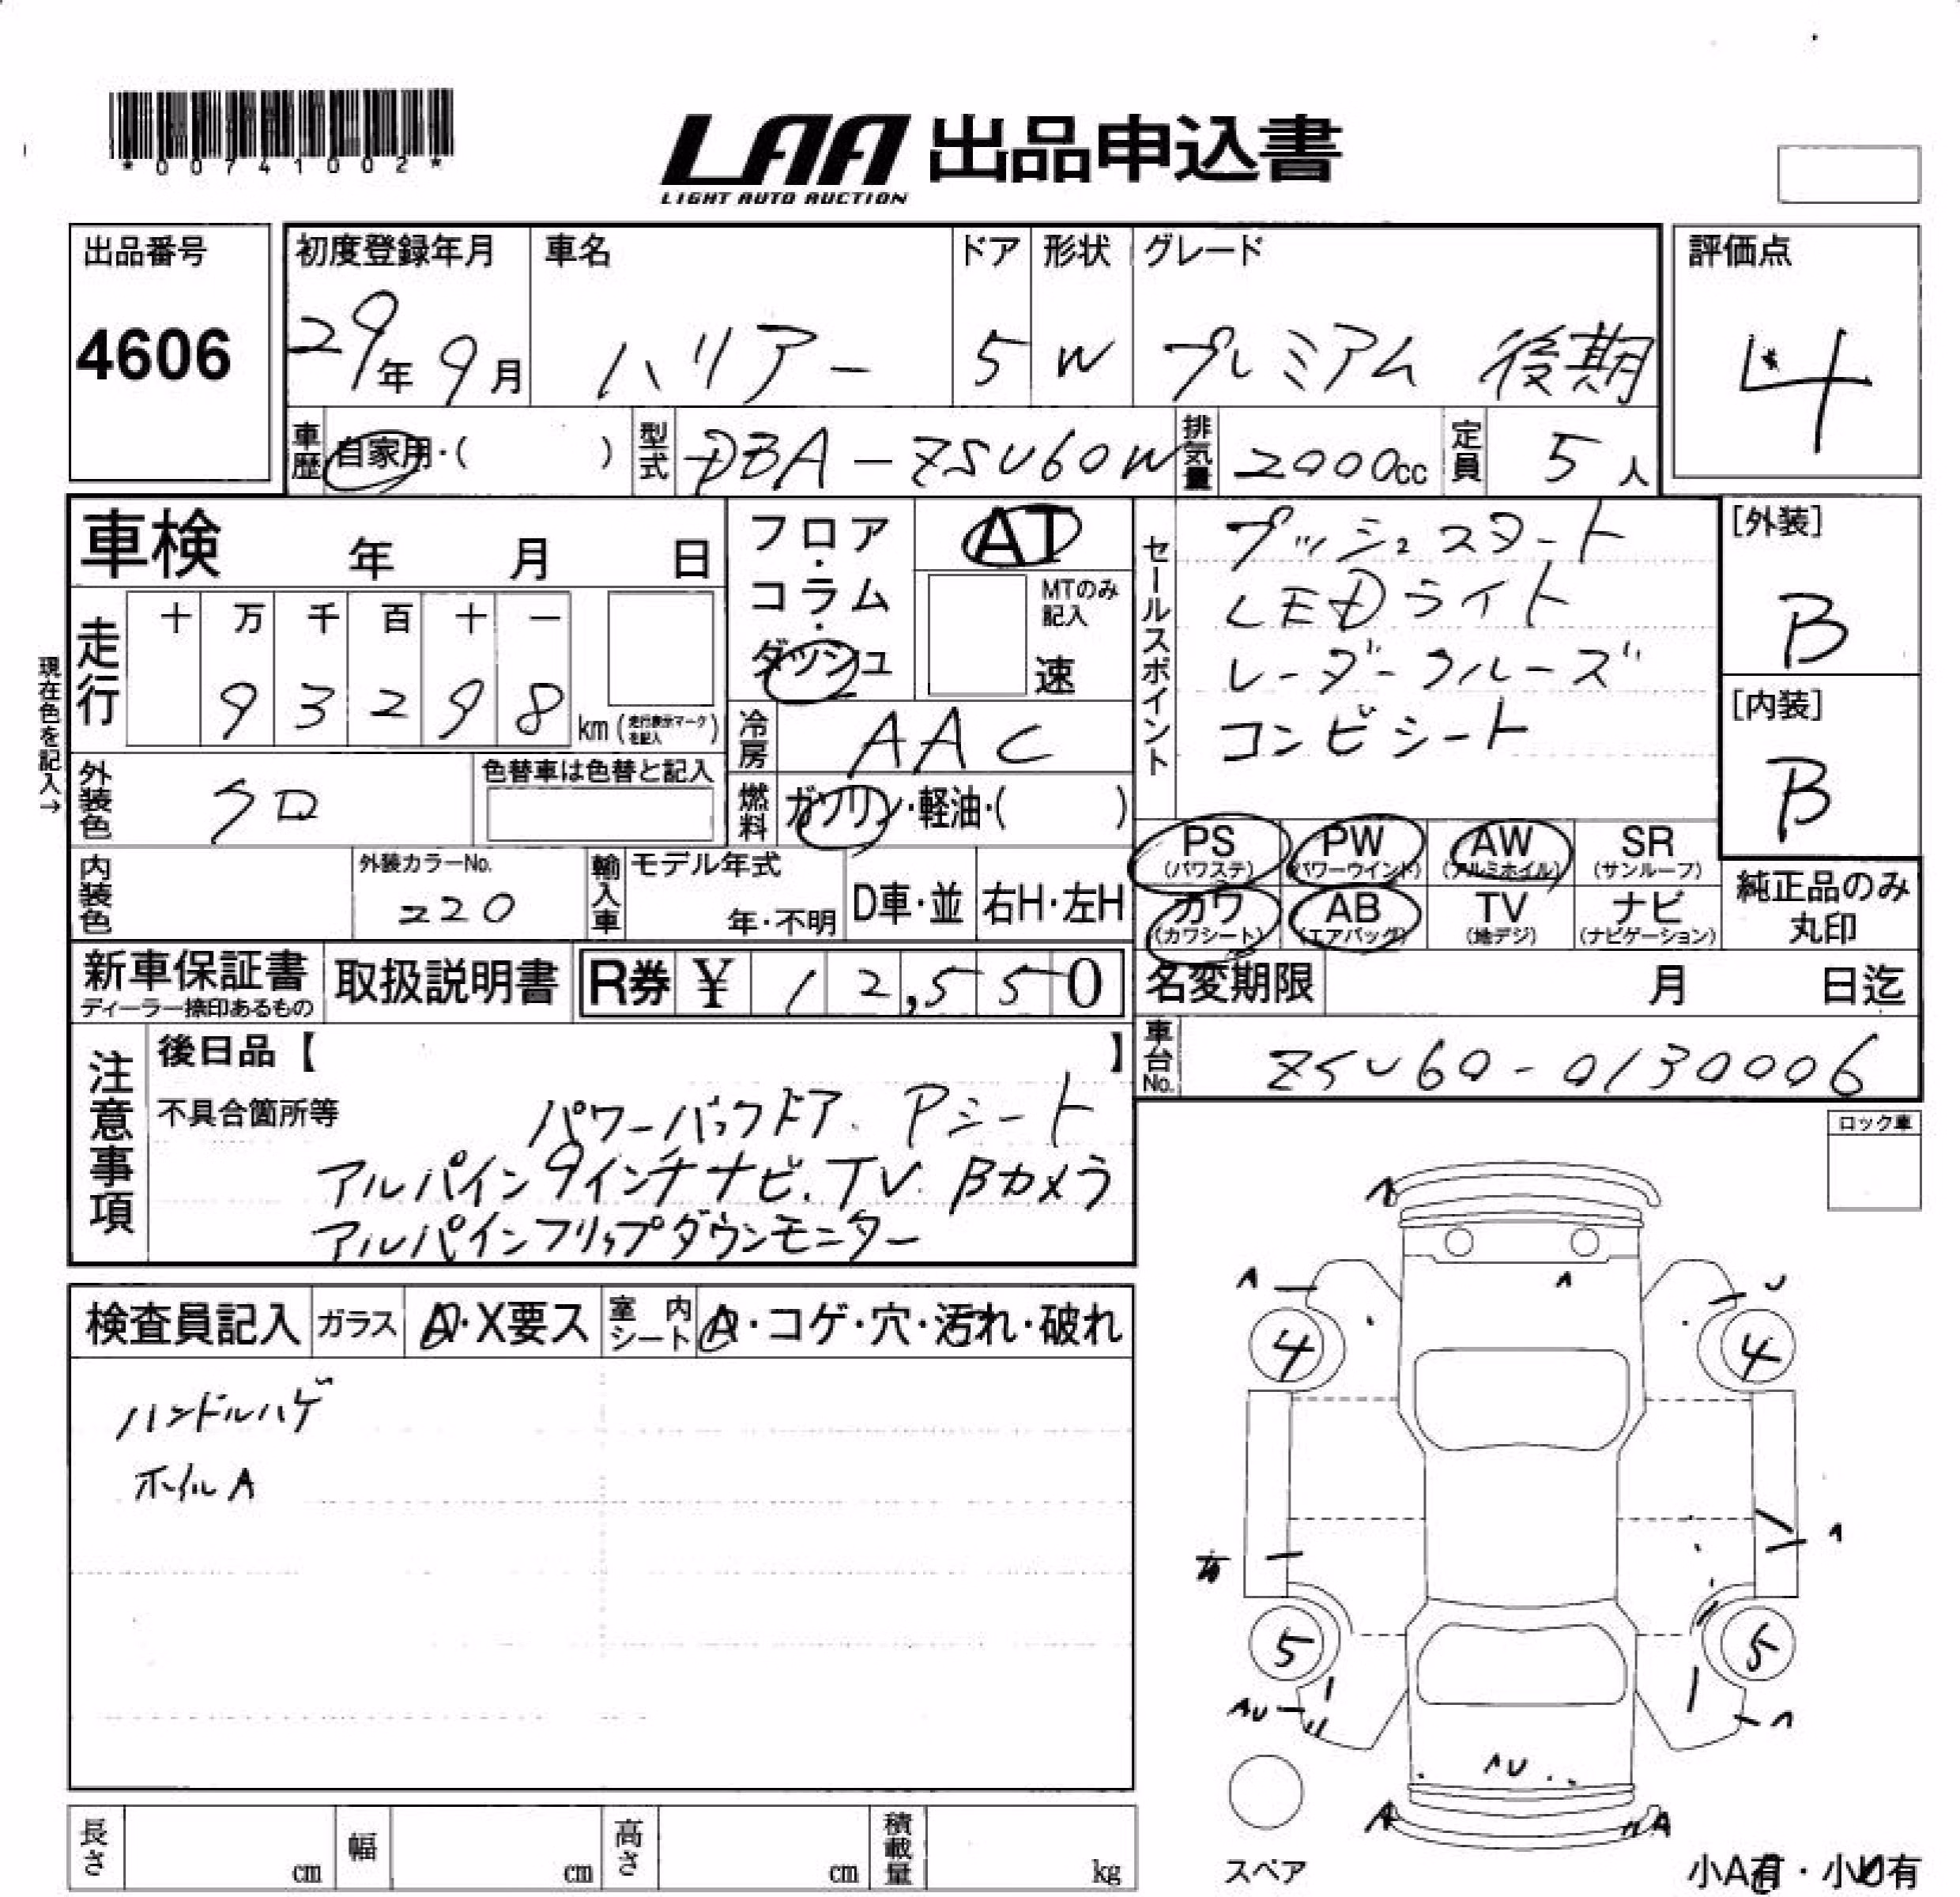 *00741002*
LAA 出品申込書
LIGHT AUTO AUCTION
出品番号
4606
初度登録年月
29年 9月
車名
ハリアー
ドア
5
形状
W
グレード
プレミアム 後期
評価点
4
車歴 自家用・( )
型式 DBA-ZSU60W
排気量 2000cc
定員 5人
車検 年 月 日
フロア・コラム・ダッシュ
AT
MTのみ記入
速
セールスポイント
プッシュスタート
LEDライト
レーダークルーズ
コンビシート
[外装]
B
[内装]
B
現在色を記入→
走行
十 万 千 百 十 一
9 3 2 9 8 km (走行表示マークを記入)
冷房 AAC
外装色 クロ
色替車は色替と記入
燃料 ガソリン・軽油・( )
PS (パワステ)
PW (パワーウインド)
AW (アルミホイル)
SR (サンルーフ)
カワ (カワシート)
AB (エアバッグ)
TV (地デジ)
ナビ (ナビゲーション)
純正品のみ
丸印
内装色
外装カラーNo.
220
輸入車
モデル年式
年・不明
D車・並
右H・左H
新車保証書
ディーラー捺印あるもの
取扱説明書
R券 ¥ 12,550
名変期限 月 日迄
車台No. ZSU60-0130006
注意事項
後日品【 】
不具合箇所等
パワーバックドア. Pシート
アルパイン9インチナビ.TV.Bカメラ
アルパインフリップダウンモニター
ロック車
検査員記入
ガラス A・X要ス
室内シート A・コゲ・穴・汚れ・破れ
ハンドルハゲ
ホイルA
A
A
A
U
4
4
A
5
5
AU
A
AU
A
A
スペア
長さ cm
幅 cm
高さ cm
積載量 kg
小A有・小U有